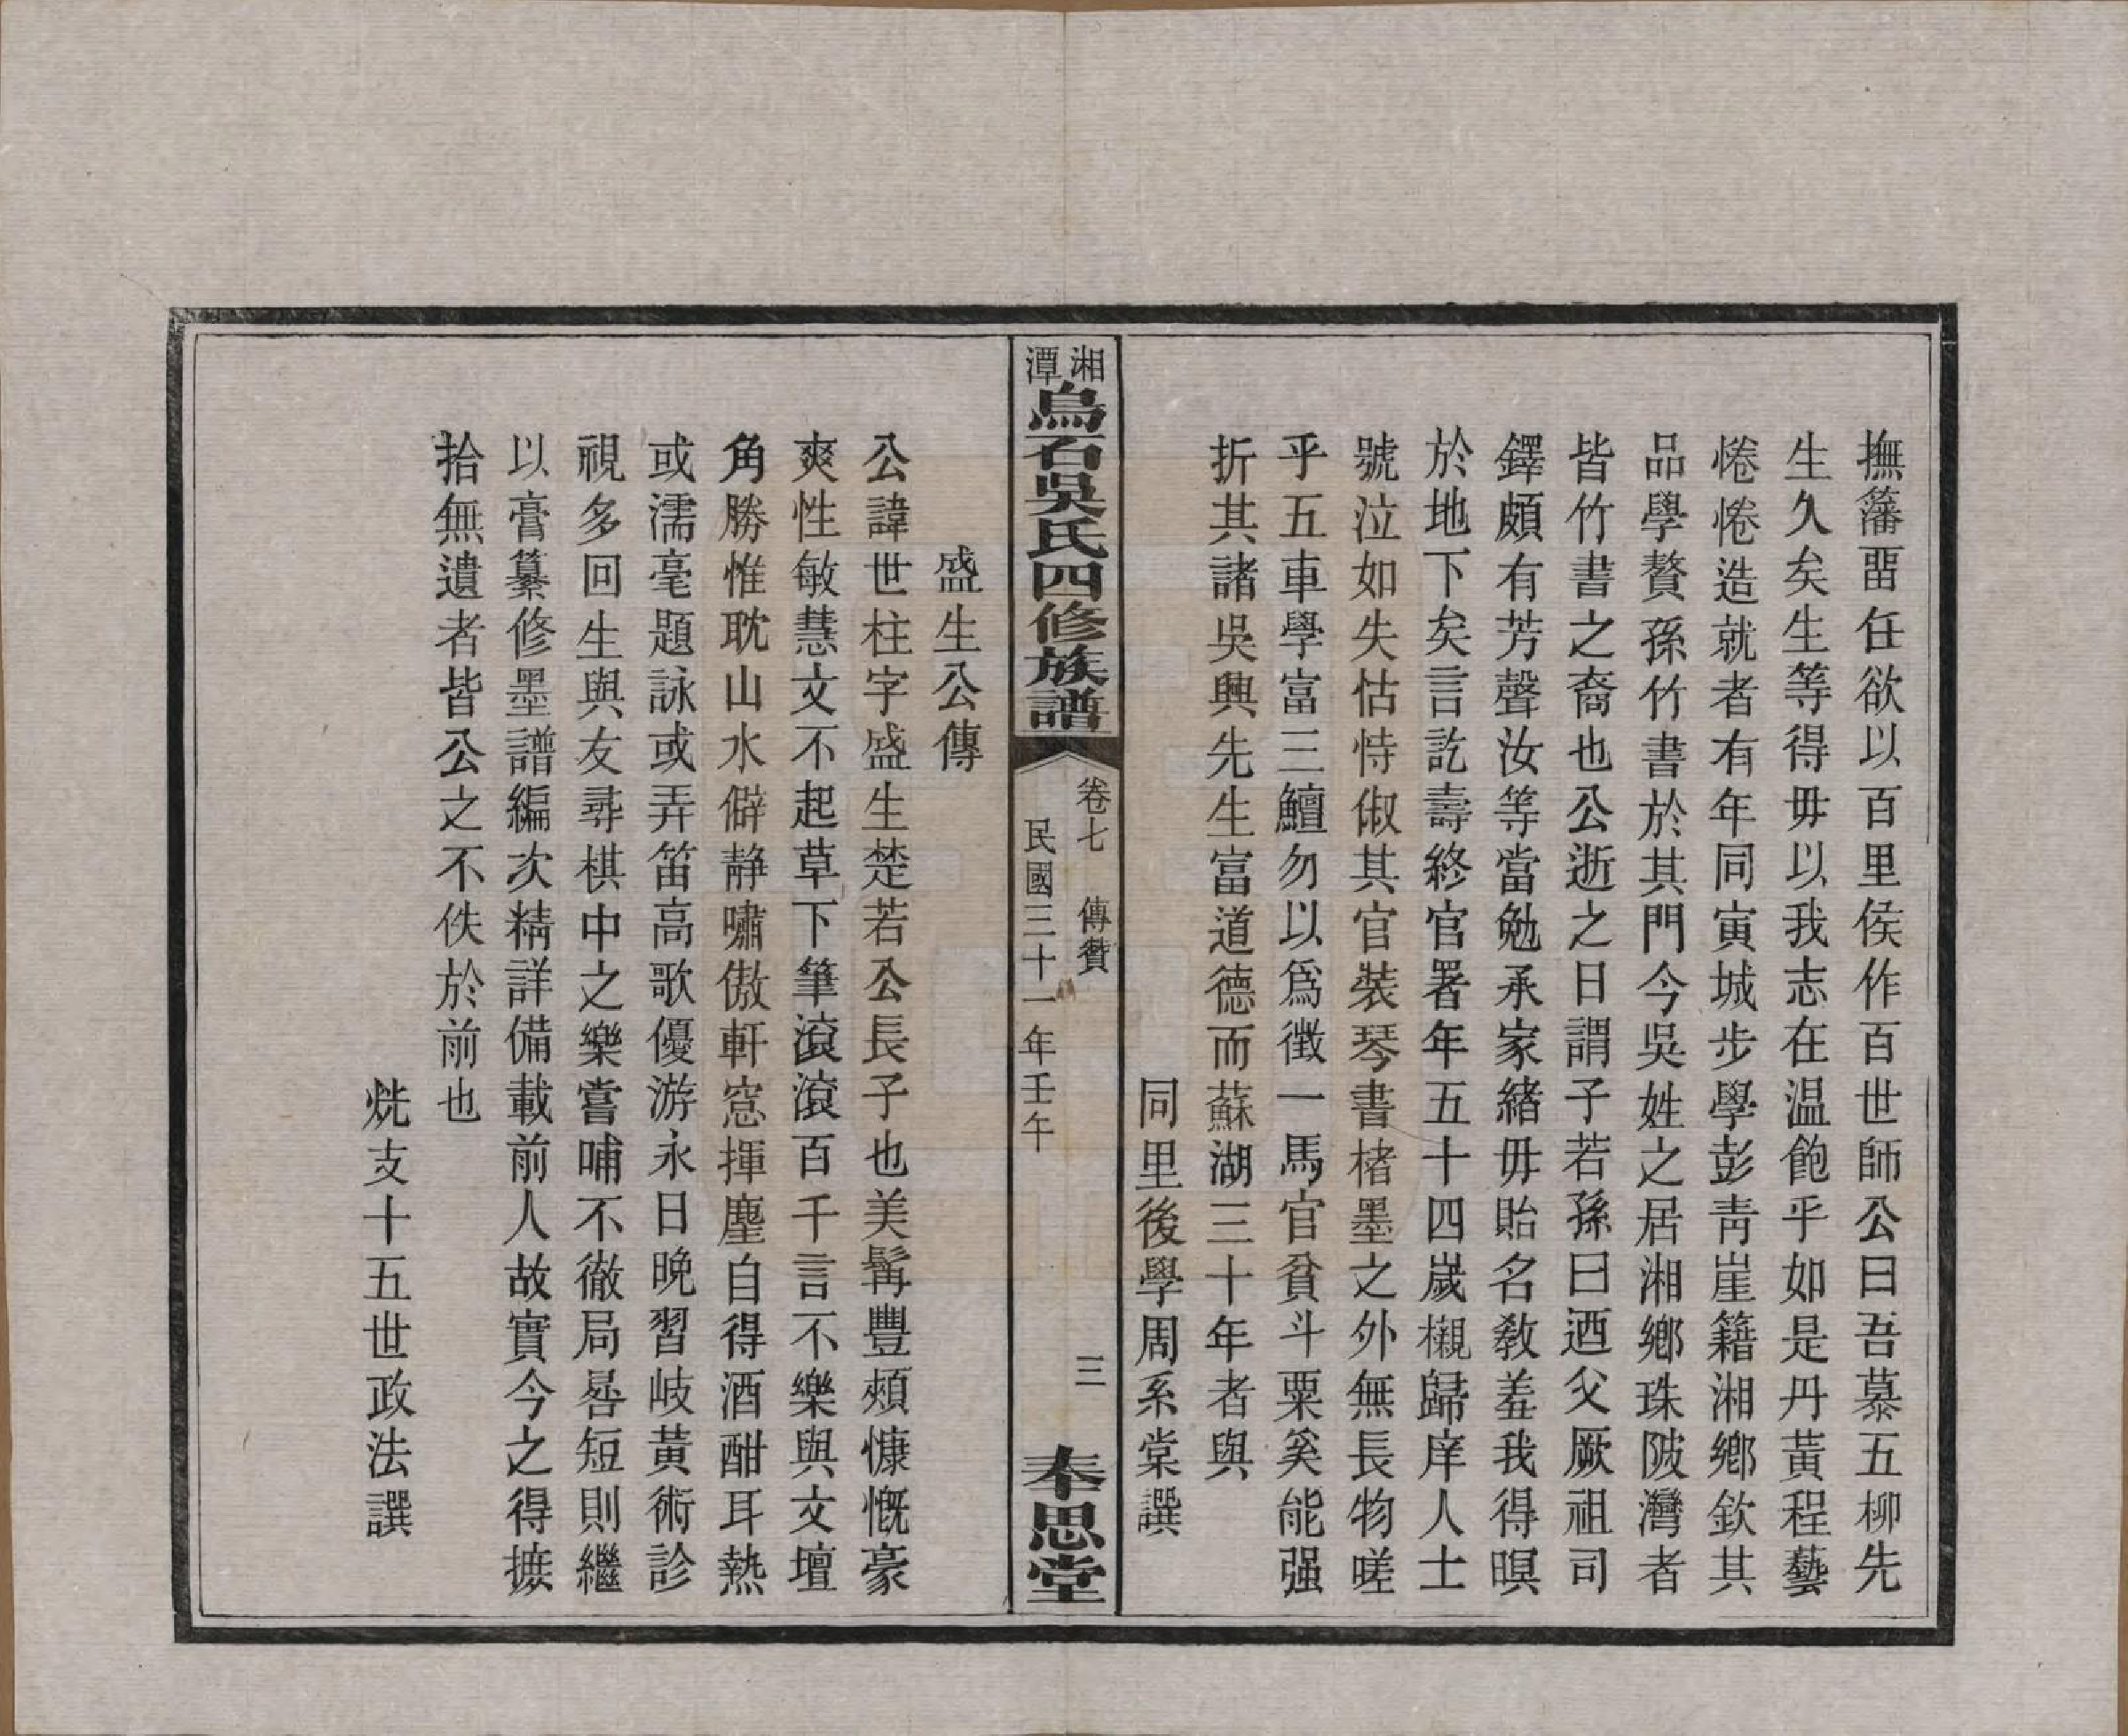 撫藩畱任欲以百里侯作百世師公曰吾慕五柳先
生久矣生等得毋以我志在温飽乎如是丹黃程藝
惓惓造就者有年同寅城步學彭靑崖籍湘鄉欽其
品學贅孫竹書於其門今吳姓之居湘鄉珠陂灣者
皆竹書之裔也公逝之日謂子若孫曰迺父厥祖司
鐸頗有芳聲汝等當勉承家緒毋貽名敎羞我得暝
於地下矣言訖壽終官署年五十四嵗櫬歸庠人士
號泣如失怙恃俶其官裝琴書楮墨之外無長物嗟
乎五車學富三鱣勿以爲徵一馬官貧斗粟奚能强
折其諸吳興先生富道德而蘇湖三十年者與
同里後學周系棠譔
湘潭烏石吳氏四修族譜
卷七　傳贊
民國三十一年壬午
三
奉思堂
盛生公傳
公諱世柱字盛生楚若公長子也美髯豐頰慷慨豪
爽性敏慧文不起草下筆滾滾百千言不樂與文壇
角勝惟耽山水僻靜嘯傲軒窓揮麈自得酒酣耳熱
或濡毫題詠或弄笛高歌優游永日晚習岐黃術診
視多回生與友尋棋中之樂嘗哺不徹局晷短則繼
以膏纂修墨譜編次精詳備載前人故實今之得摭
拾無遺者皆公之不佚於前也
烑支十五世政法譔